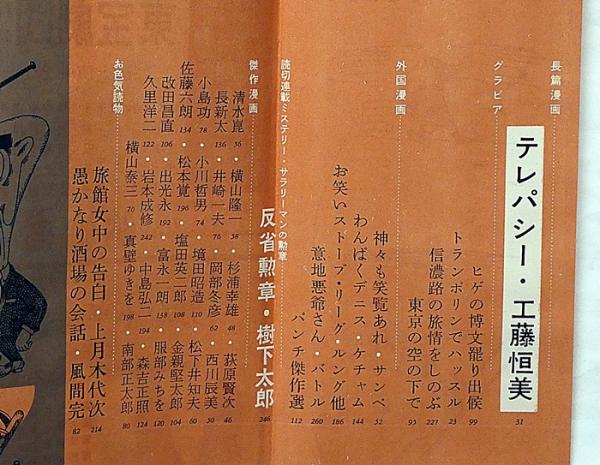 長篇漫画
テレパシー・工藤恒美 31
グラビア
ヒゲの博文罷り出候 99
トランポリンでハッスル 23
信濃路の旅情をしのぶ 227
東京の空の下で 95
外国漫画
神々も笑覧あれ・サンペ 52
わんぱくデニス・ケチャム 144
お笑いストーブ・リーグ・ルング他 186
意地悪爺さん・バトル 260
パンチ傑作選 112
読切連載ミステリー・サラリーマンの勲章
反省勲章・樹下太郎 246
傑作漫画
清水崑 36・横山隆一 38・杉浦幸雄 48・荻原賢次 46
長新太 136・井崎一夫 76・岡部冬彦 62・西川辰美 30
小島功 78・小川哲男 74・境田昭造 110・松下井知夫 60
佐藤六朗 134・松本覚 196・塩田英二郎 108・金親堅太郎 104
改田昌直 106・出光永 192・富永一朗 138・服部みちを 120
久里洋二 122・岩本成修 242・中島弘二 194・森吉正照 124
横山泰三 70・真壁ゆきを 198・南部正太郎 80
お色気読物
旅館女中の告白・上月木代次 214
愚かなり酒場の会話・風間完 82